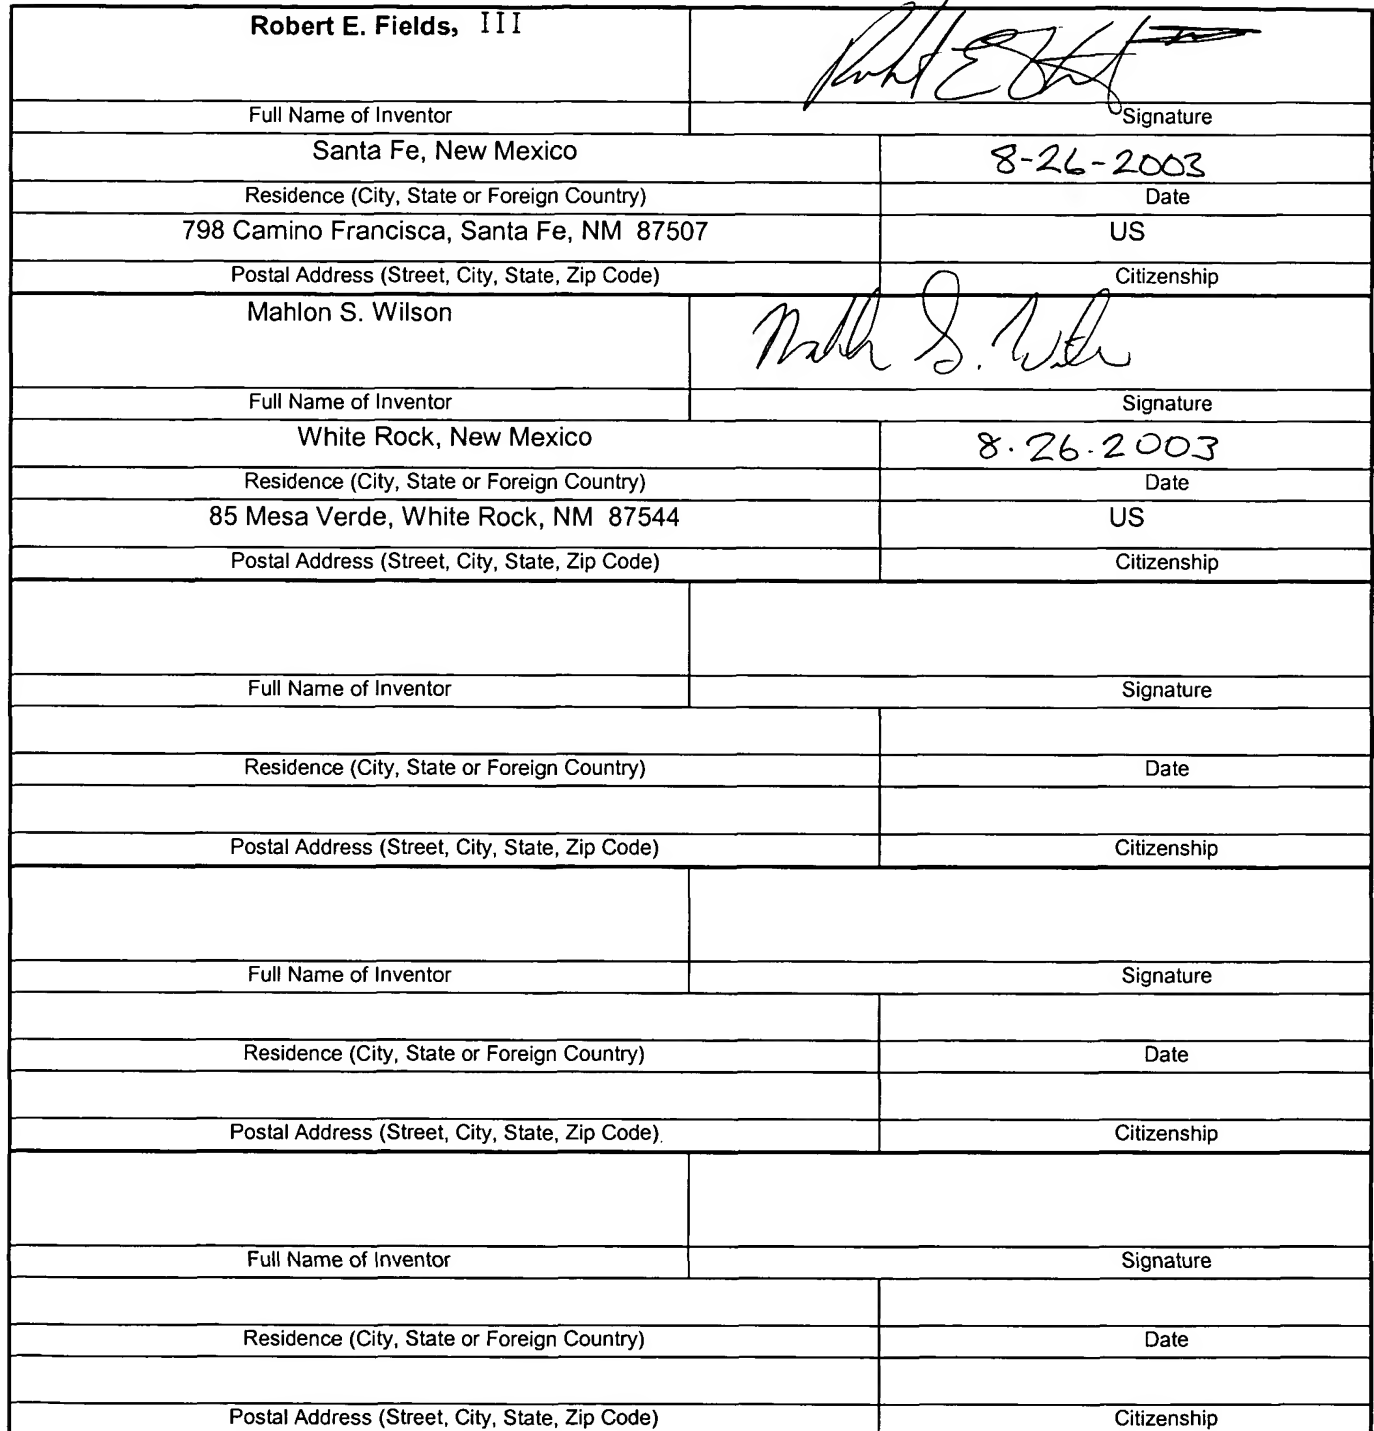 Robert E. Fields, III
Full Name of Inventor Signature
Santa Fe, New Mexico 8-26-2003
Residence (City, State or Foreign Country) Date
798 Camino Francisca, Santa Fe, NM 87507 US
Postal Address (Street, City, State, Zip Code) Citizenship
Mahlon S. Wilson
Full Name of Inventor Signature
White Rock, New Mexico 8.26.2003
Residence (City, State or Foreign Country) Date
85 Mesa Verde, White Rock, NM 87544 US
Postal Address (Street, City, State, Zip Code) Citizenship
Full Name of Inventor Signature
Residence (City, State or Foreign Country) Date
Postal Address (Street, City, State, Zip Code) Citizenship
Full Name of Inventor Signature
Residence (City, State or Foreign Country) Date
Postal Address (Street, City, State, Zip Code) Citizenship
Full Name of Inventor Signature
Residence (City, State or Foreign Country) Date
Postal Address (Street, City, State, Zip Code) Citizenship